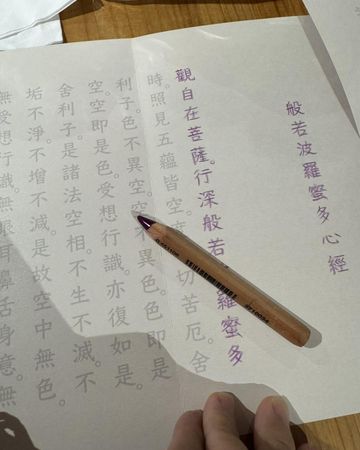 般若波羅蜜多心經
觀自在菩薩。行深般若羅蜜多
時。照見五蘊皆空。度切苦厄。舍
利子。色不異空。空不異色。色即是
空。空即是色。受想行識。亦復如是。
舍利子。是諸法空相。不生不滅。不
垢不淨。不增不減。是故空中無色。
無受想行識。無眼耳鼻舌身意。無